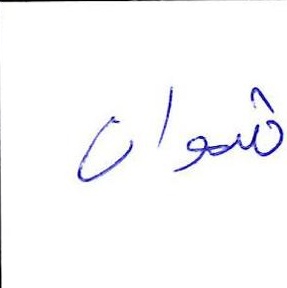 شموان